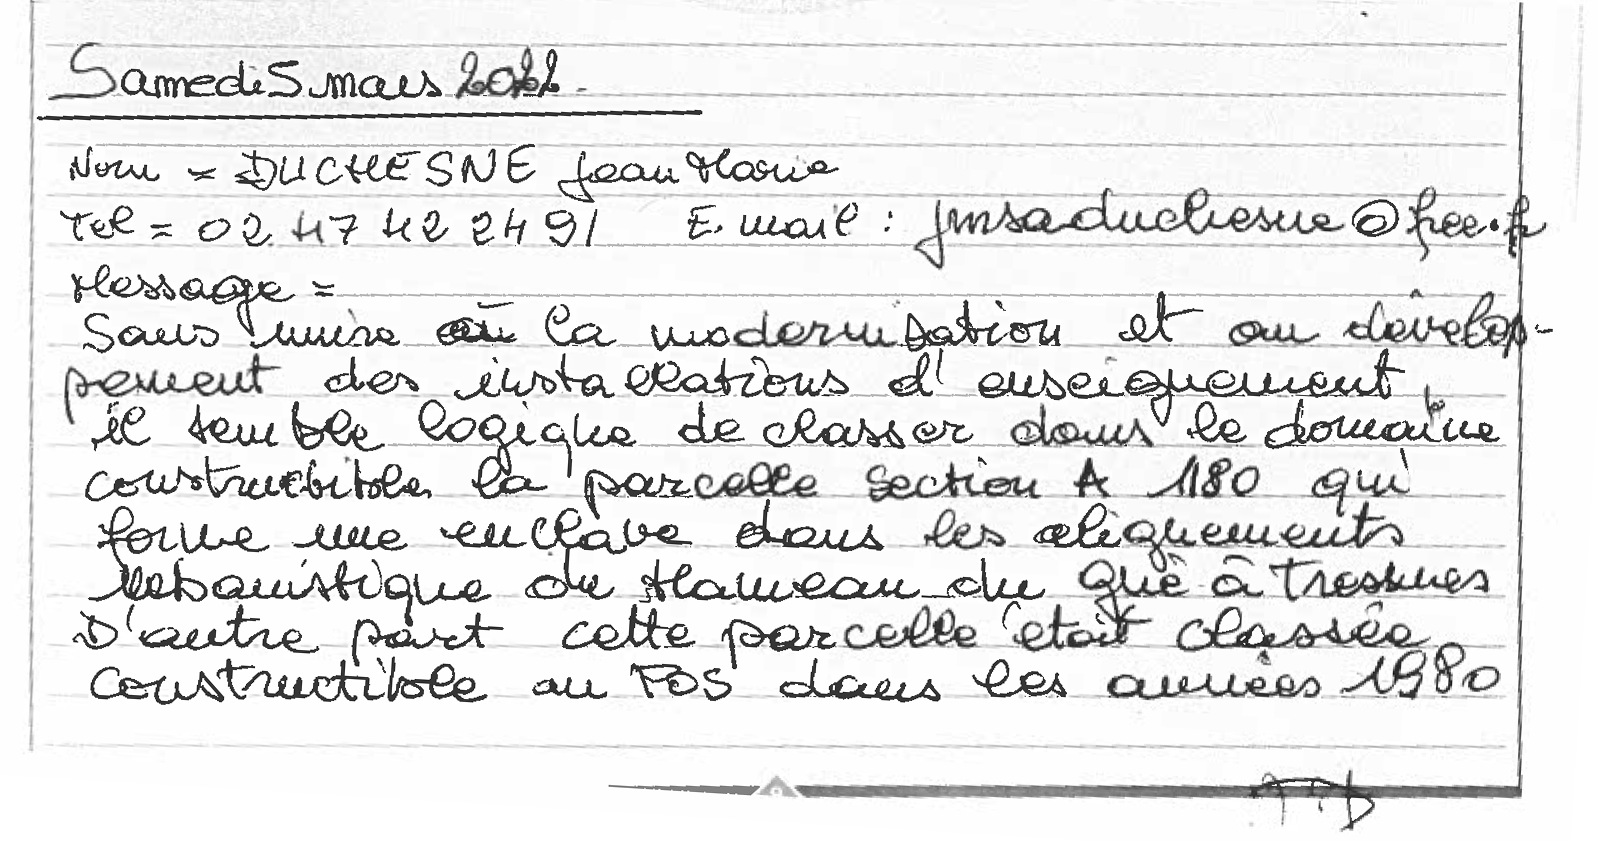 Samedi 5 mars 2022.
Nom = DUCHESNE Jean Marie
Tel = 02 47 42 24 91 E.mail : jmsaduchesne@free.fr
Message =
Sans nuire à la modernisation et au dévelop-
pement des installations d'enseignement
il semble logique de classer dans le domaine
constructible la parcelle section A 1180 qui
forme une enclave dans les alignements
urbanistique du Hameau du Gué à Tresmes
D'autre part cette parcelle était classée
constructible au POS dans les années 1980